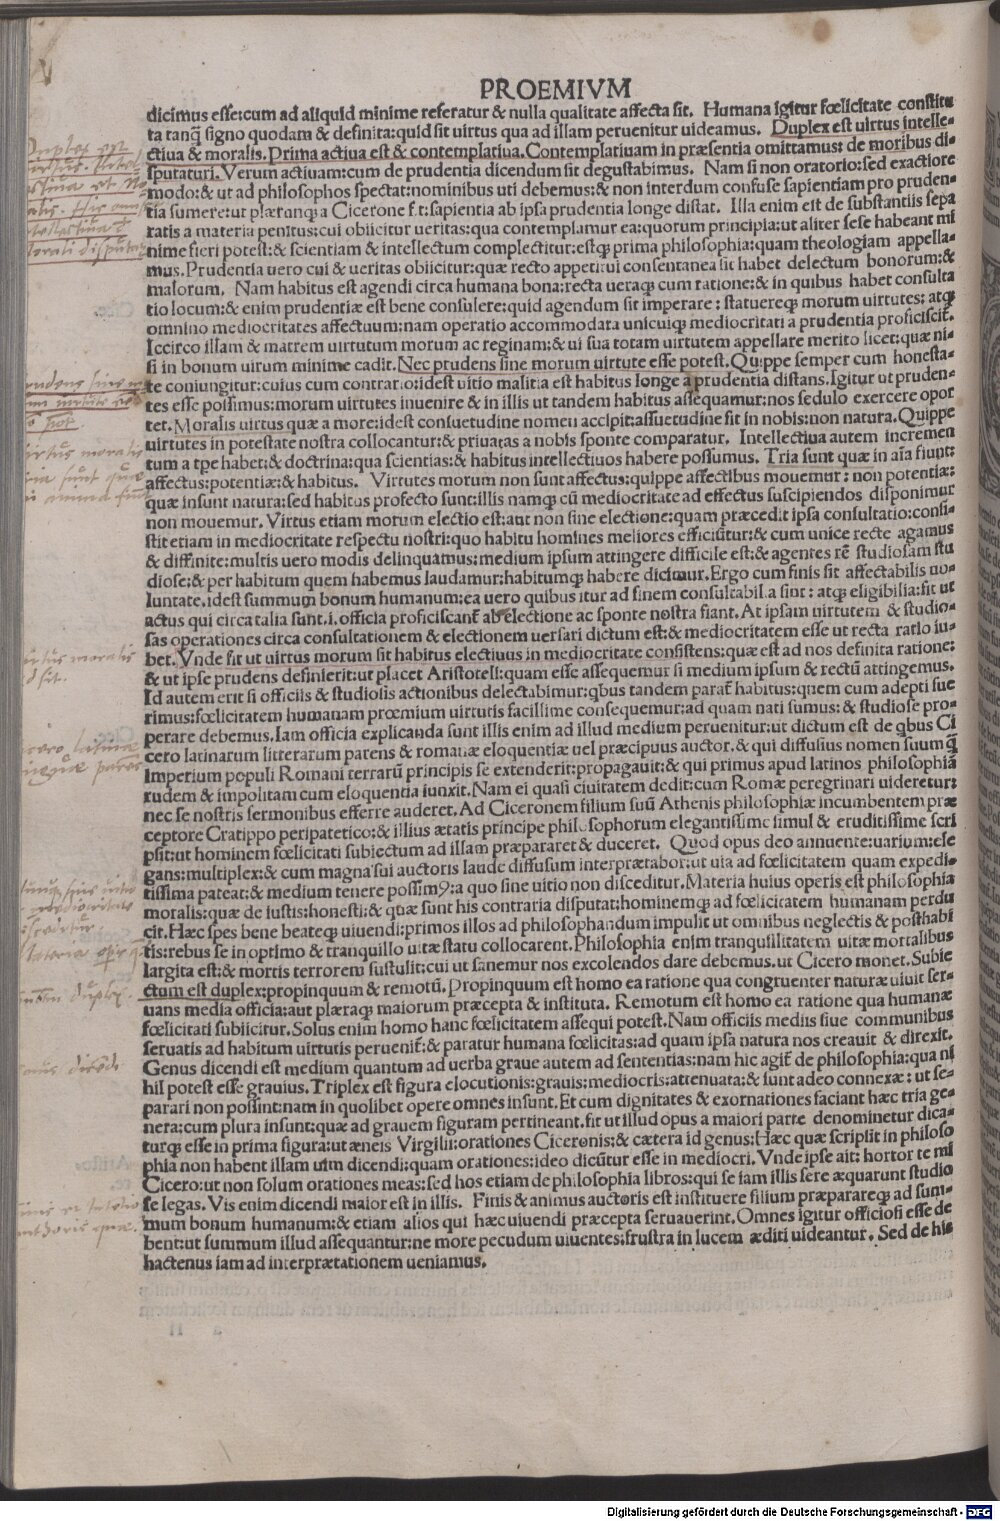 PROEMIVM
dicimus esse:cum ad aliquid minime referatur & nulla qualitate affecta sit. Humana igitur fœlicitate constitu
ta tanq̃ signo quodam & definita:quid sit uirtus qua ad illam peruenitur uideamus. Duplex est uirtus intelle-
ctiua & moralis. Prima actiua est & contemplatiua. Contemplatiuam in præsentia omittamus: de moribus di-
sputaturi. Verum actiuam:cum de prudentia dicendum sit degustabimus. Nam si non oratorio:sed exactiore
modo:& ut ad philosophos spectat:nominibus uti debemus:& non interdum confuse sapientiam pro pruden-
tia sumere:ut plæranqꝫ a Cicerone fit:sapientia ab ipsa prudentia longe distat. Illa enim est de substantiis sepa
ratis a materia penitus:cui obiicitur ueritas:qua contemplamur ea:quorum principia:ut aliter sese habeant mi
nime fieri potest:& scientiam & intellectum complectitur:estqꝫ prima philosophia:quam theologiam appella-
mus. Prudentia uero cui & ueritas obiicitur:quæ recto appetitui consentanea sit habet delectum bonorum:&
malorum. Nam habitus est agendi circa humana bona:recta ueraqꝫ cum ratione:& in quibus habet consulta
tio locum:& enim prudentiæ est bene consulere:quid agendum sit imperare: statuereqꝫ morum uirtutes: atqꝫ
omnino mediocritates affectuum:nam operatio accommodata unicuiqꝫ mediocritati a prudentia proficiscit̃.
Iccirco illam & matrem uirtutum morum ac reginam:& ui sua totam uirtutem appellare merito licet:quæ ni-
si in bonum uirum minime cadit. Nec prudens sine morum uirtute esse potest. Quippe semper cum honesta-
te coniungitur:cuius cum contrario:idest uitio malitia est habitus longe a prudentia distans. Igitur ut pruden-
tes esse possimus:morum uirtutes inuenire & in illis ut tandem habitus assequamur:nos sedulo exercere opor
tet. Moralis uirtus quæ a more:idest consuetudine nomen accipit:assuetudine sit in nobis:non natura. Quippe
uirtutes in potestate nostra collocantur:& priuatas a nobis sponte comparatur. Intellectiua autem incremen
tum a tpe habet:& doctrina:qua scientias:& habitus intellectiuos habere possumus. Tria sunt quæ in aĩa fiunt:
affectus:potentiæ:& habitus. Virtutes morum non sunt affectus:quippe affectibus mouemur: non potentiæ:
quæ insunt natura:sed habitus profecto sunt:illis namqꝫ cũ mediocritate ad effectus suscipiendos disponimur
non mouemur. Virtus etiam morum electio est:aut non sine electione:quam præcedit ipsa consultatio:consi-
stit etiam in mediocritate respectu nostri:quo habitu homines meliores efficiũtur:& cum unice recte agamus
& diffinite:multis uero modis delinquamus:medium ipsum attingere difficile est:& agentes rẽ studiosam stu
diose:& per habitum quem habemus laudamur:habitumqꝫ habere dicimur. Ergo cum finis sit affectabilis uo-
luntate.idest summum bonum humanum:ea uero quibus itur ad finem consultabilia sint: atqꝫ eligibilia:sit ut
actus qui circa talia sunt.i.officia proficiscant̃ ab electione ac sponte nostra fiant. At ipsam uirtutem & studio-
sas operationes circa consultationem & electionem uersari dictum est:& mediocritatem esse ut recta ratio iu-
bet. Vnde fit ut uirtus morum sit habitus electiuus in mediocritate consistens:quæ est ad nos definita ratione:
& ut ipse prudens definierit:ut placet Aristoteli:quam esse assequemur si medium ipsum & rectũ attingemus.
Id autem erit si officiis & studiosis actionibus delectabimur:qbus tandem parat̃ habitus:quem cum adepti fue
rimus:fœlicitatem humanam prœmium uirtutis facillime consequemur:ad quam nati sumus:& studiose pro-
perare debemus. Iam officia explicanda sunt illis enim ad illud medium peruenitur:ut dictum est de qbus Ci
cero latinarum litterarum parens & romanæ eloquentiæ uel præcipuus auctor.& qui diffusius nomen suum q̃
imperium populi Romani terrarũ principis se extenderit:propagauit:& qui primus apud latinos philosophiã
rudem & impolitam cum eloquentia iunxit. Nam ei quasi ciuitatem dedit:cum Romæ peregrinari uideretur:
nec se nostris sermonibus efferre auderet. Ad Ciceronem filium suũ Athenis philosophiæ incumbentem præ
ceptore Cratippo peripatetico:& illius ætatis principe philosophorum elegantissime simul & eruditissime scri
psit:ut hominem fœlicitati subiectum ad illam præpararet & duceret. Quod opus deo annuente:uarium:ele
gans:multiplex:& cum magna sui auctoris laude diffusum interprætabor:ut uia ad fœlicitatem quam expedi-
tissima pateat:& medium tenere possimꝰ:a quo sine uitio non disceditur. Materia huius operis est philosophia
moralis:quæ de iustis:honesti:& quæ sunt his contraria disputat:hominemqꝫ ad fœlicitatem humanam perdu
cit. Hæc spes bene beateqꝫ uiuendi:primos illos ad philosophandum impulit ut omnibus neglectis & posthabi
tis:rebus se in optimo & tranquillo uitæ statu collocarent. Philosophia enim tranquilitatem uitæ mortalibus
largita est:& mortis terrorem sustulit:cui ut sanemur nos excolendos dare debemus.ut Cicero monet. Subie
ctum est duplex:propinquum & remotũ. Propinquum est homo ea ratione qua congruenter naturæ uiuit ser-
uans media officia:aut plæraqꝫ maiorum præcepta & instituta. Remotum est homo ea ratione qua humanæ
fœlicitati subiicitur. Solus enim homo hanc fœlicitatem assequi potest. Nam officiis mediis siue communibus
seruatis ad habitum uirtutis peruenit̃:& paratur humana fœlicitas:ad quam ipsa natura nos creauit & direxit.
Genus dicendi est medium quantum ad uerba graue autem ad sententias:nam hic agit̃ de philosophia:qua ni
hil potest esse grauius. Triplex est figura elocutionis:grauis:mediocris:attenuata:& sunt adeo connexæ: ut se-
parari non possint:nam in quolibet opere omnes insunt. Et cum dignitates & exornationes faciant hæc tria ge-
nera:cum plura insunt:quæ ad grauem figuram pertineant.fit ut illud opus a maiori parte denominetur dica-
turqꝫ esse in prima figura:ut æneis Virgilii:orationes Ciceronis:& cætera id genus:Hæc quæ scripsit in philoso
phia non habent illam uim dicendi:quam orationes:ideo dicũtur esse in mediocri. Vnde ipse ait: hortor te mi
Cicero:ut non solum orationes meas:sed hos etiam de philosophia libros:qui se iam illis fere æquarunt studio
se legas. Vis enim dicendi maior est in illis. Finis & animus auctoris est instituere filium præparareqꝫ ad sum-
mum bonum humanum:& etiam alios qui hæc uiuendi præcepta seruauerint. Omnes igitur officiosi esse de
bent:ut summum illud assequantur:ne more pecudum uiuentes:frustra in lucem æditi uideantur. Sed de his
hactenus iam ad interprætationem ueniamus.
Digitalisierung gefördert durch die Deutsche Forschungsgemeinschaft - DFG